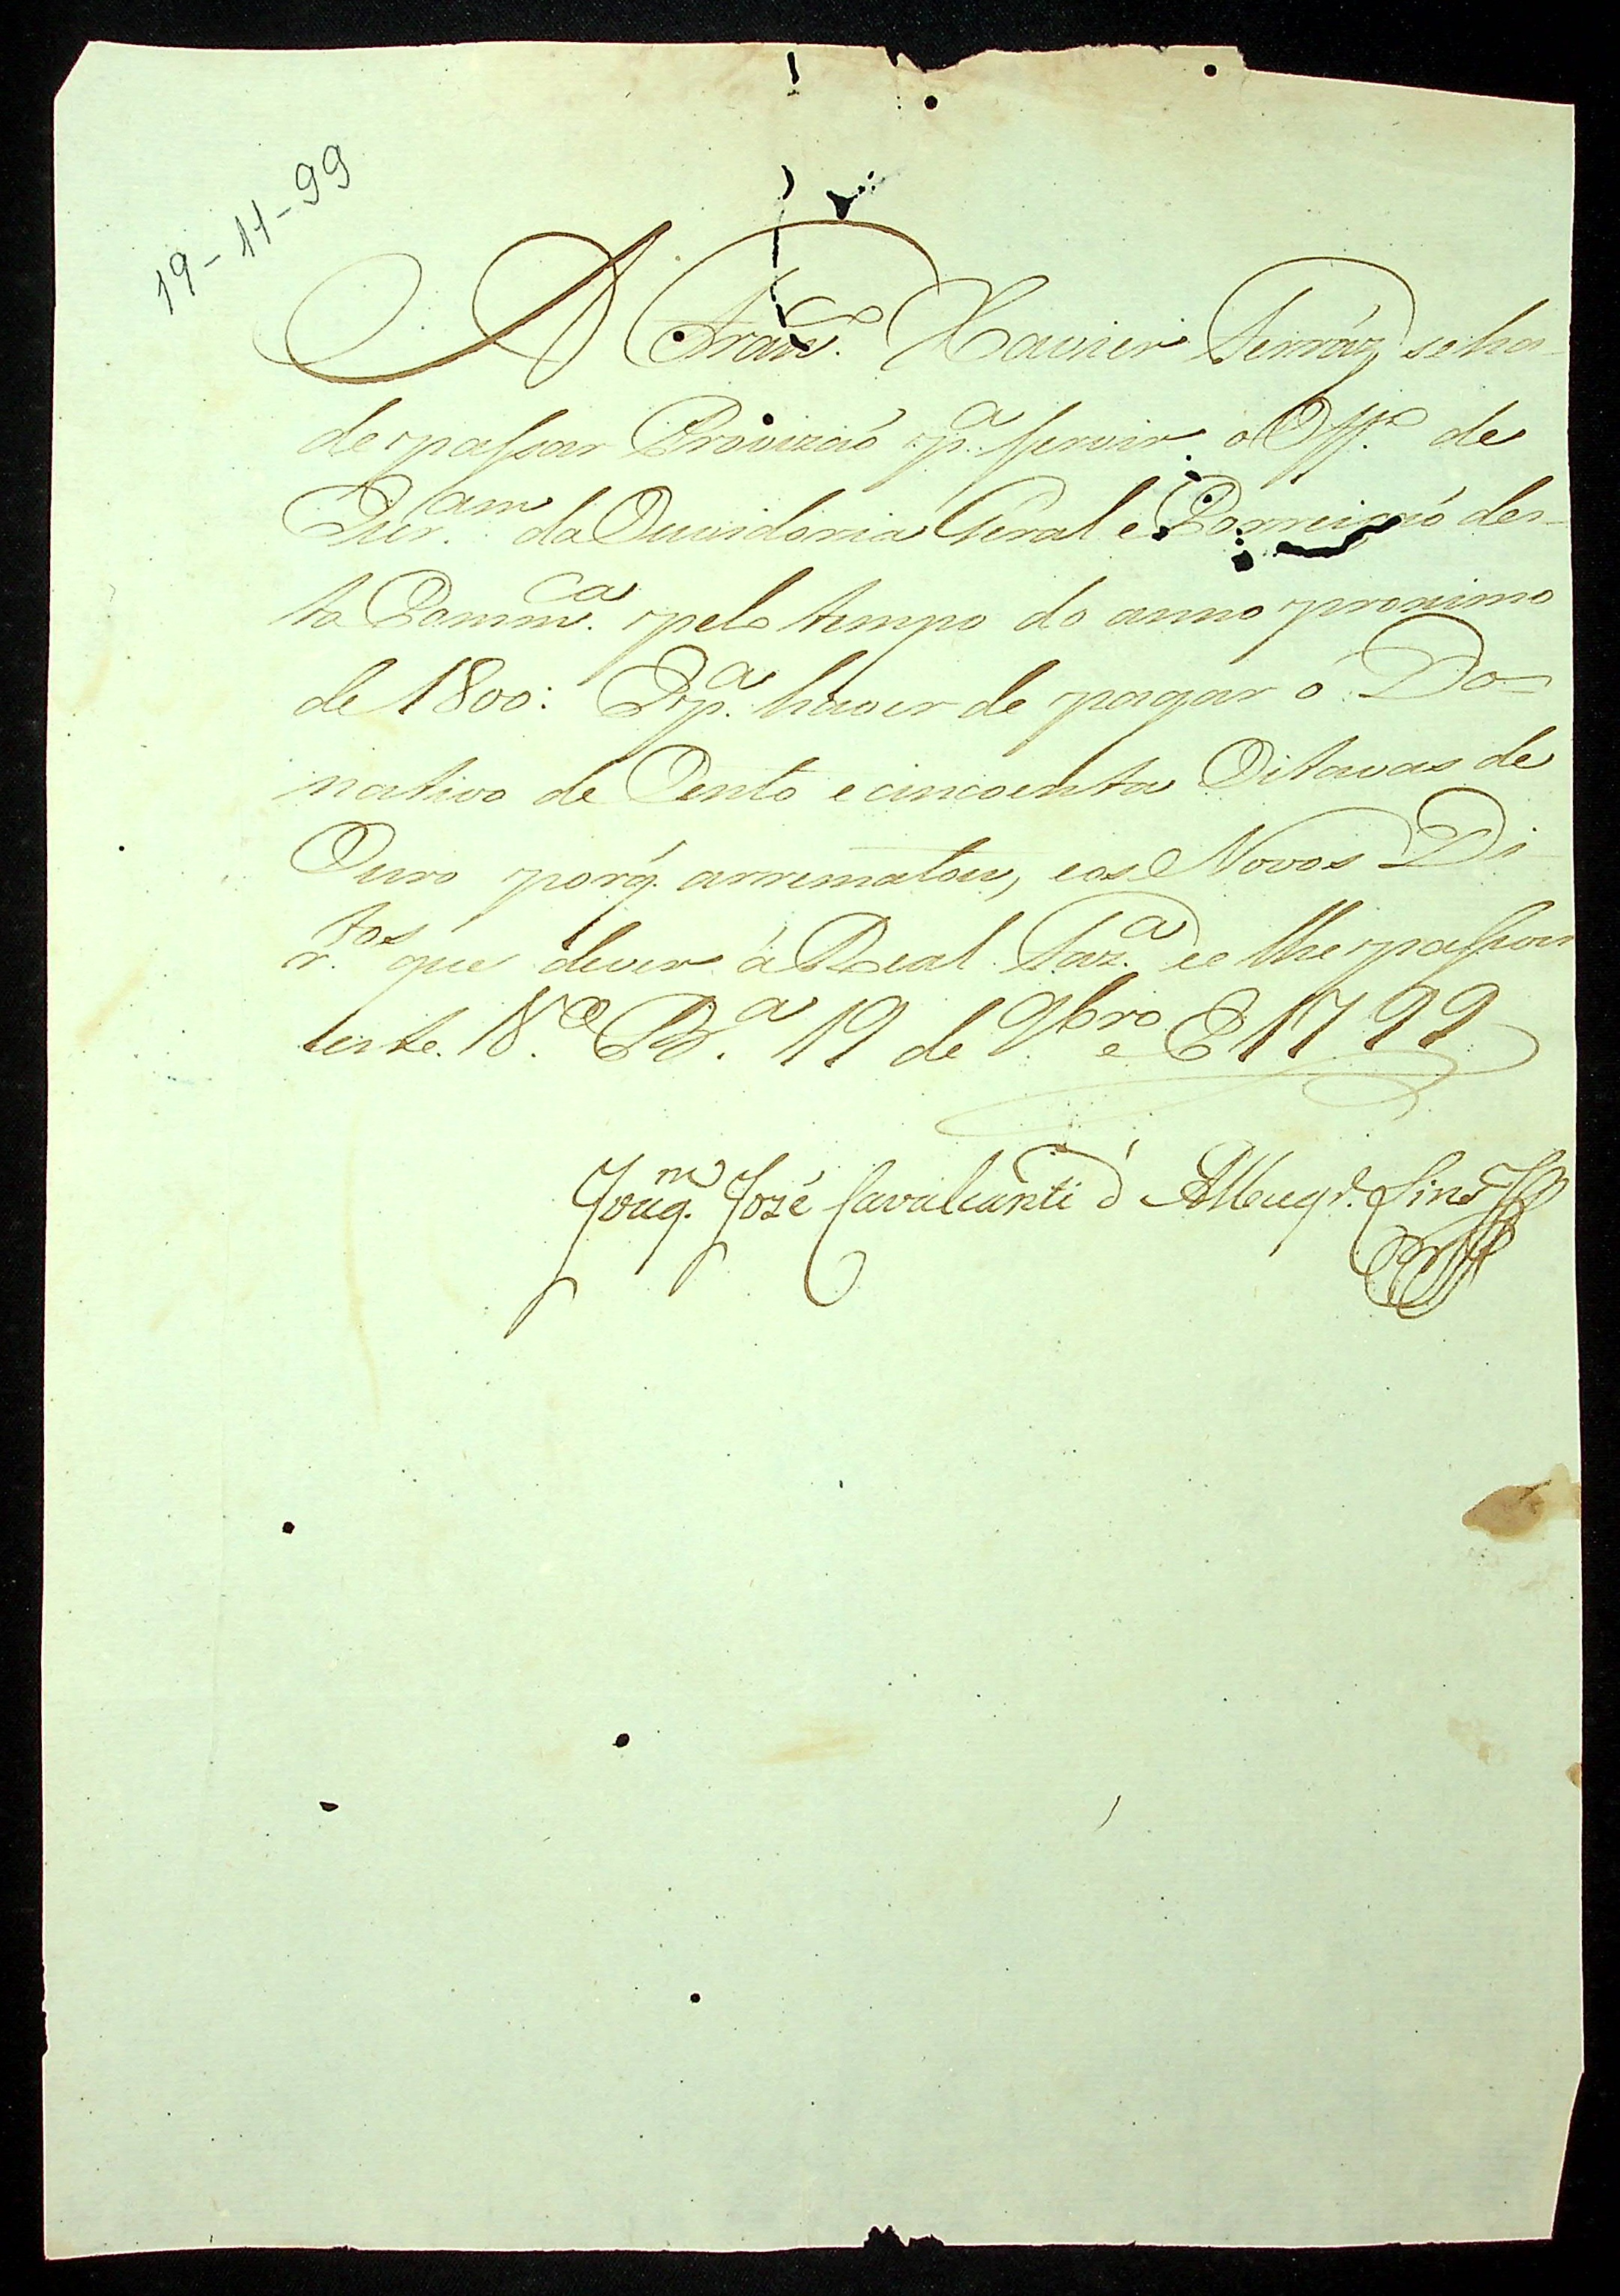 19-11-99
A Franc.co Xavier Ferráz se ha
de passar Provizaó p.a servir o Off.o de
da Ouvidoria Geral e Correiçaó des-
ta Comm.ca pelo tempo do anno proximo
de 1800: E p.a haver de pagar o Do-
nativo de Cento e cincoenta Oitavas de
Ouro porq. arrematou, e os Novos Di
r.tos que dever á Real Faz.a se lhe passou
este. V.a B.a 19 de 9bro de 1799
Joaq.m José Cavalcanti d' Albuqr.e Lins